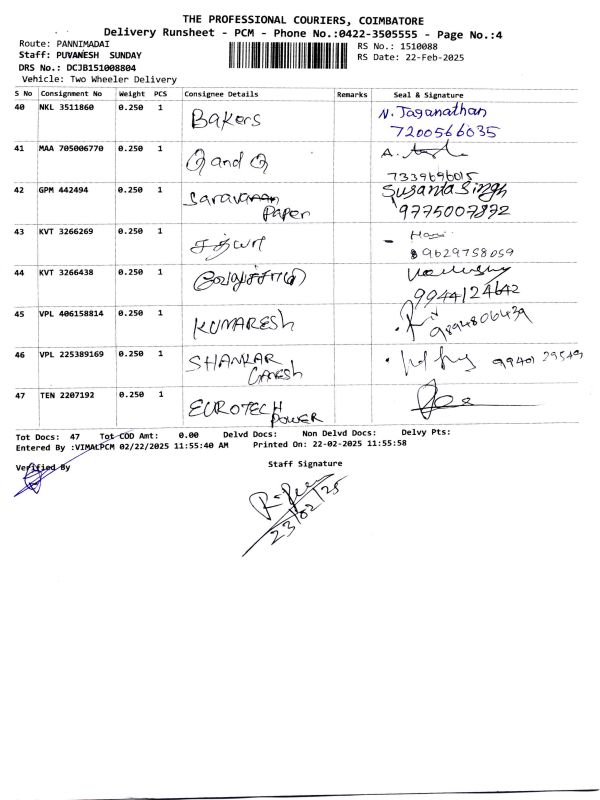 THE PROFESSIONAL COURIERS, COIMBATORE
Delivery Runsheet - PCM - Phone No.:0422-3505555 - Page No.:4
Route: PANNIMADAI
RS No.: 1510088
Staff: PUVANESH SUNDAY
RS Date: 22-Feb-2025
DRS No.: DCJB151008804
Vehicle: Two Wheeler Delivery
S No Consignment No Weight PCS Consignee Details Remarks Seal & Signature
40 NKL 3511860 0.250 1 Bakers N. Jaganathan
7200566035
41 MAA 705006770 0.250 1 Q and Q A.
7339696015
42 GPM 442494 0.250 1 Saravanan Paper Susanta Singh
9775007892
43 KVT 3266269 0.250 1 சத்யா
9629758059
44 KVT 3266438 0.250 1
9944124642
45 VPL 406158814 0.250 1 KUMARESH
9894806439
46 VPL 225389169 0.250 1 SHANKAR GANESH
47 TEN 2207192 0.250 1 EUROTECH POWER
Tot Docs: 47 Tot COD Amt: 0.00 Delvd Docs: Non Delvd Docs: Delvy Pts:
Entered By :VIMALPCM 02/22/2025 11:55:40 AM Printed On: 22-02-2025 11:55:58
Verified By
Staff Signature
23/02/25